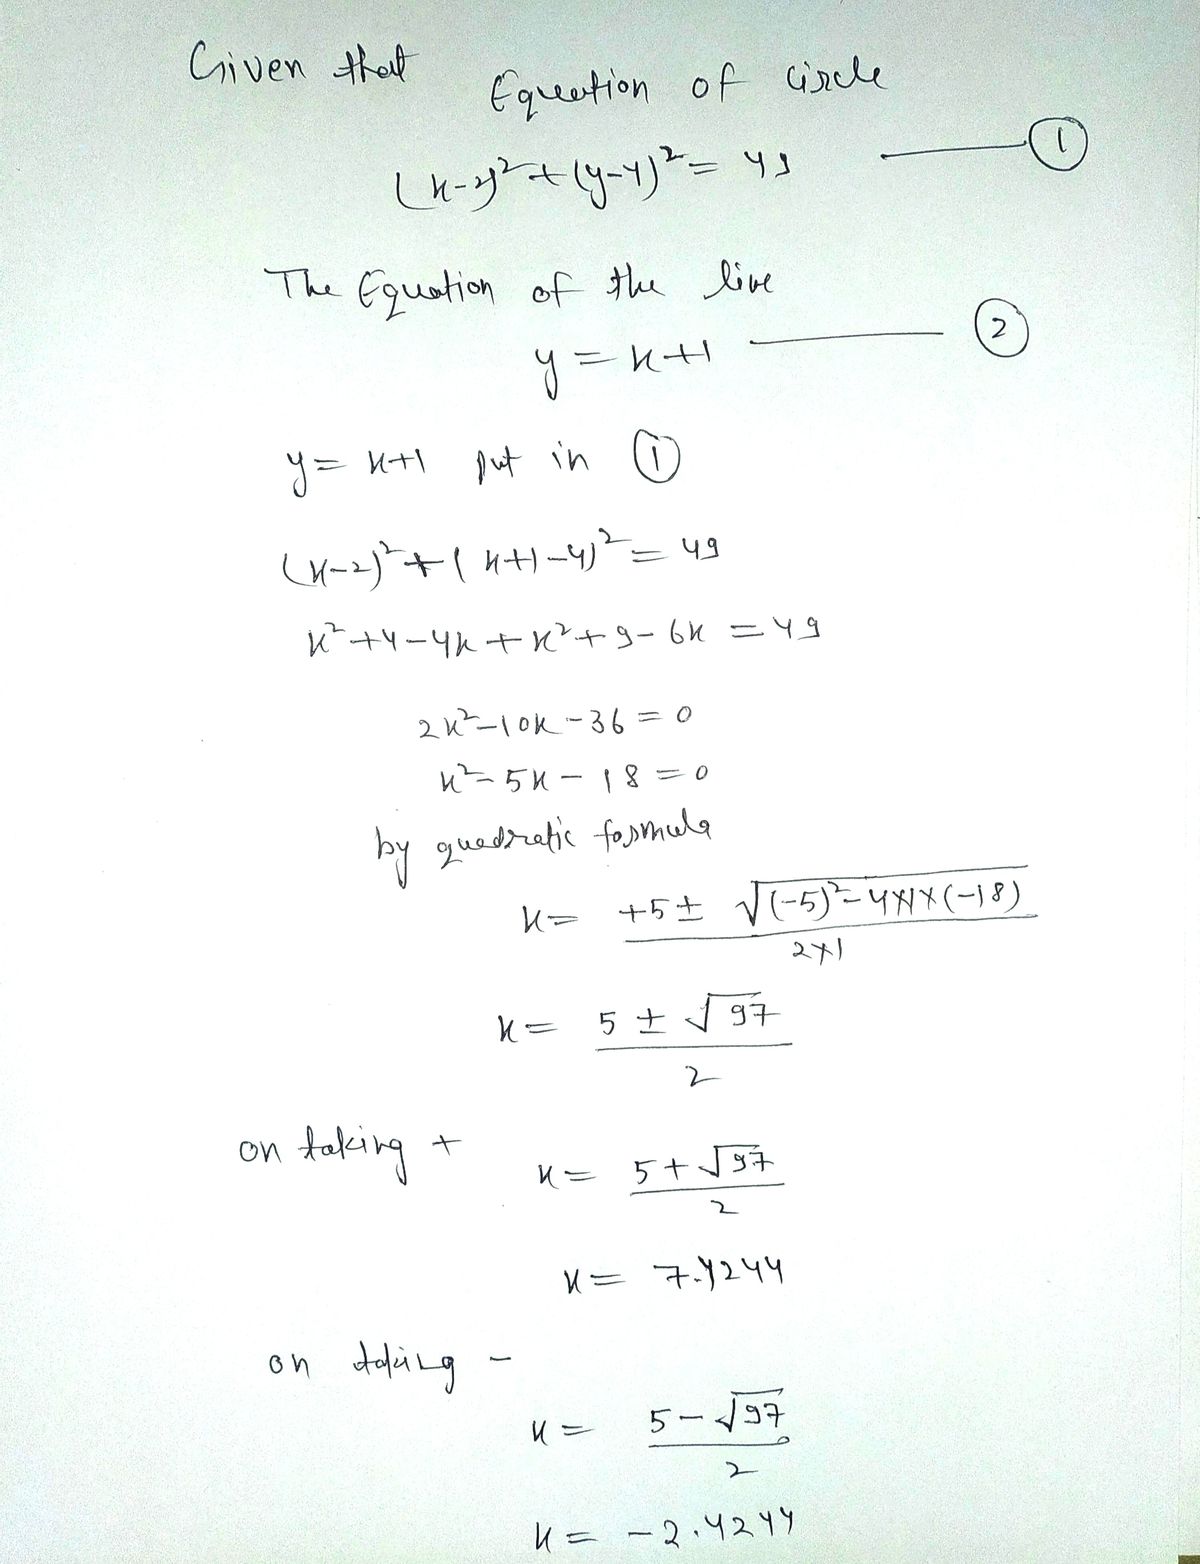 Given that
Equation of circle
(x-2)²+(y-4)² = 49 ——— ①
The Equation of the line
y = x+1 ——— ②
y = x+1 put in ①
(x-2)²+(x+1-4)² = 49
x²+4-4x+x²+9-6x = 49
2x²-10x-36 = 0
x²-5x-18 = 0
by quadratic formula
x = +5 ± √(-5)²-4×1×(-18)
2×1
x = 5 ± √97
2
on taking +
x = 5+√97
2
x = 7.4244
on taking -
x = 5-√97
2
x = -2.4244